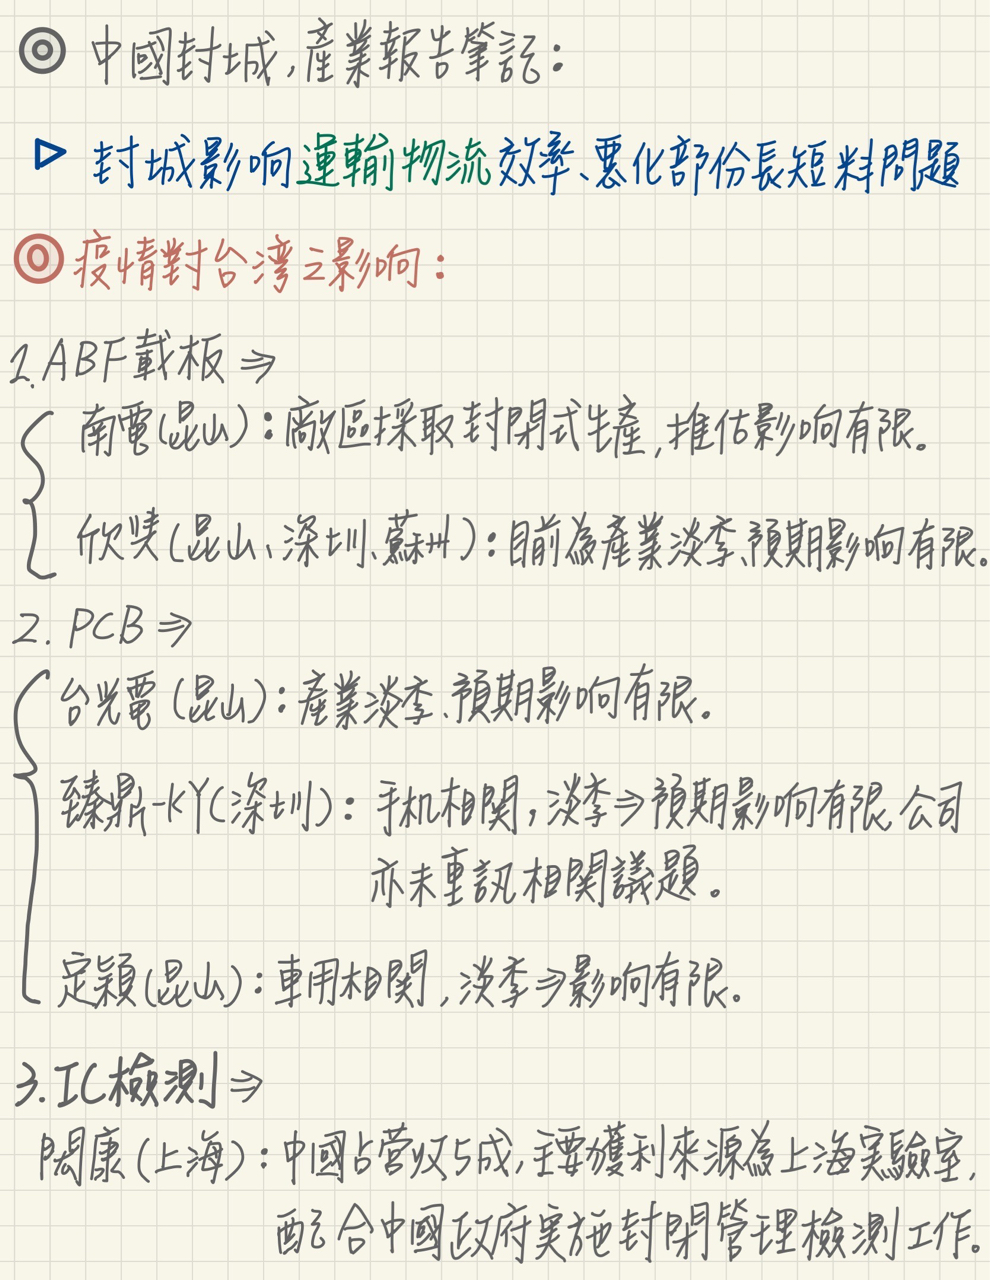 ◎ 中國封城,產業報告筆記:
▷ 封城影响運輸物流效率、惡化部份長短料問題
◎疫情對台灣之影响:
1.ABF載板⇒
南電(昆山):廠區採取封閉式生產,推估影响有限。
欣興(昆山、深圳、蘇州):目前為產業淡季、預期影响有限。
2. PCB⇒
台光電(昆山):產業淡季、預期影响有限。
臻鼎-KY(深圳):手机相關,淡季⇒預期影响有限,公司
亦未重訊相關議題。
定穎(昆山):車用相關,淡季⇒影响有限。
3.IC檢測⇒
閎康(上海):中國占營收5成,主要獲利來源為上海実驗室,
配合中國政府実施封閉管理檢測工作。